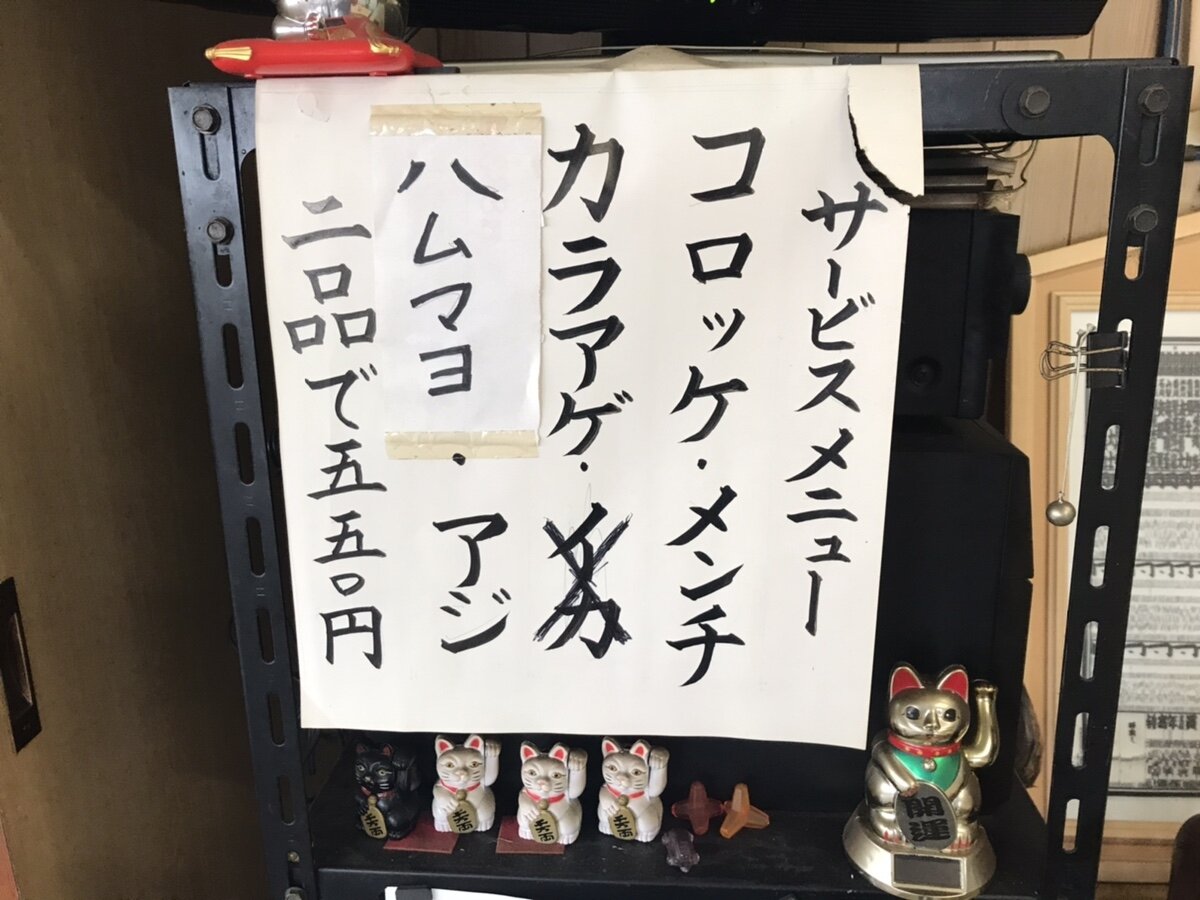 サービスメニュー
コロッケ・メンチ
カラアゲ・イカ
ハムマヨ・アジ
二品で五五〇円
開運